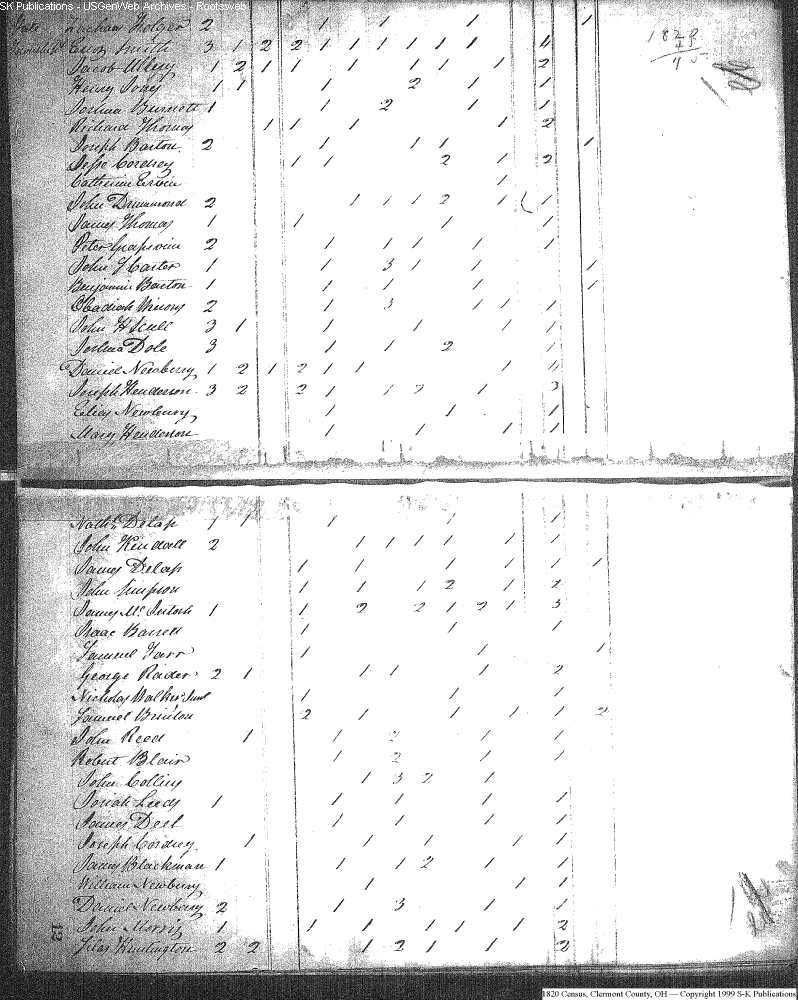 SK Publications - USGenWeb Archives - Rootsweb
2 1 1
Enos Smith 3 1 2 2 1 1 1 1 1 1 1 4
Jacob Ulrey 1 2 1 1 1 1 1 1 2
Henry 1 1 1 2 1 1
Joshua Burnett 1 1 2 1 1
Richard Thomas 1 1 1 1 2
Joseph Barton 2 1 1 1 1
Jesse Cordrey 1 1 2 1 2
Catherine Ervin 1
John Drummond 2 1 1 1 2 1 1
James Thomas 1 1 1 1
Peter Grapevine 2 1 1 1 1 1
John Harter 1 1 3 1 1 1
Benjamin Barton 1 1 1 1 1
Obadiah Winans 2 1 3 1 1 1
John H Scull 3 1 1 1 1 1
Joshua Dole 3 1 1 2 1
Daniel Newberry 1 2 1 2 1 1 1 4
Joseph Henderson 3 2 2 1 1 2 1 3
Elias Newberry 1 1 1
Mary Henderson 1 1 1 1
1828
45
Nathl. Delap 1 1 1 1 1
John Kendall 2 1 1 1 1 1 1
James Delap 1 1 1 1 1 1
John Simpson 1 1 1 2 1 1 2
James McIntosh 1 1 2 2 1 2 1 3
Isaac Barrett 1 1 1
Samuel Farr 1 1 1
George Rader 2 1 1 1 1 2
Nicholas Walker Junr 1 1 1
Samuel Brinton 2 1 1 1 1 2
John Reed 1 1 2 1 1
Robert Blair 1 2 1 1
John Collins 1 3 2 1
Josiah Leeds 1 1 1 1 1
James Deel 1 1 1 1
Joseph Cordrey 1 1 1 1 1
James Blackman 1 1 1 2 1 1
William Newberry 1 1 1
Daniel Newberry 2 1 3 1 1
John Morris 1 1 1 1 1 1 1 2
Silas Huntington 2 2 1 2 1 1 2
12
1820 Census, Clermont County, OH — Copyright 1999 S-K Publications